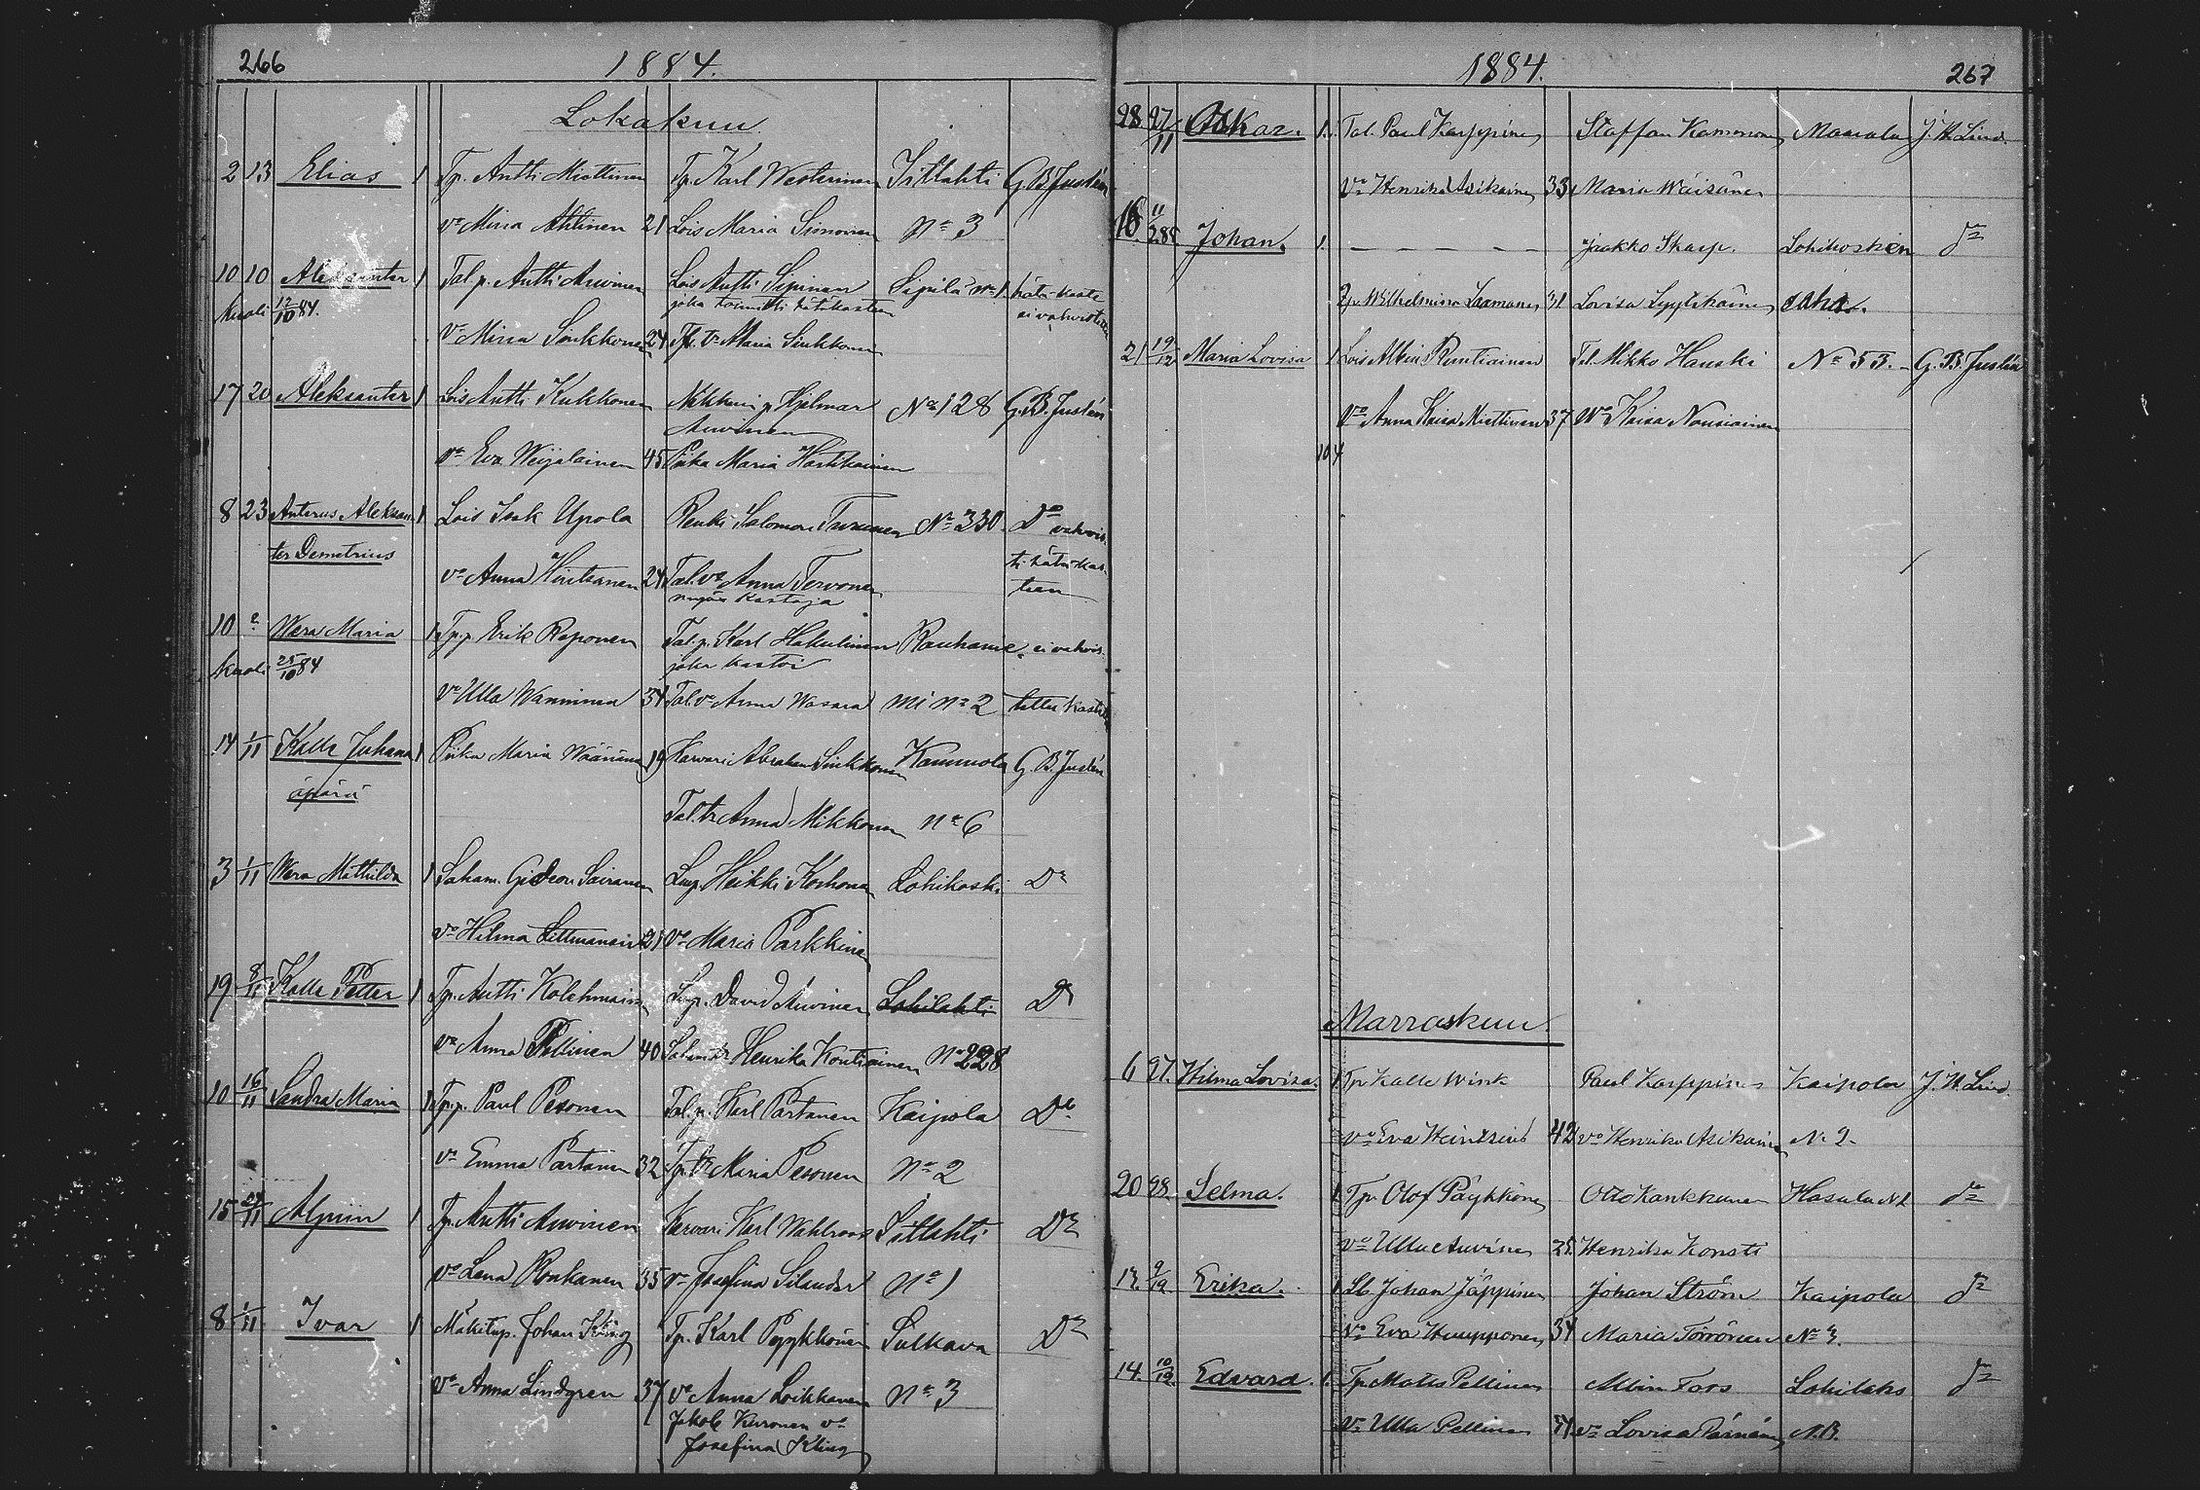 266 1884.
Lokakuu.
2 13 Elias 1 Tp. Antti Miettinen Tp. Karl Westerinen Iitlahti G. B. Justén
vo Miina Ahtinen 21 Lois Maria Simonen No 3
10 10 Aleksanter 1 Tal. p. Antti Auvinen Lois Antti Sipinen Sipilä No 1. hätä-kaste
kuoli 12/10 84. joka toimitti hätäkasteen ei vahvistettu
vo Miina Sinkkonen 24 Tp. tr Maria Sinkkonen
17 20 Aleksanter 1 Lois Antti Kukkonen Nahkuri p. Hjelmar No 128 G. B. Justén
Auvinen
vo Eva Weijalainen 45 Piika Maria Hartikainen
8 23 Anterus Aleksan- 1 Lois Isak Upola Renki Salomon Turunen No 330. Do vahvis-
ter Demetrius ti hätä-kas-
vo Anna Hintsanen 24 Tal. vo Anna Tervonen teen
myös kastaja
10 Wera Maria 1 Tp. p. Erik Reponen Tal. p. Karl Hakulinen Rauhanie- ei vahvis-
kuoli 25/10 84 joka kastoi
vo Ulla Wanninen 34 Tal. vo Anna Wasara mi No 2 tettu kaste
14 1/11 Kalle Juhana 1 Piika Maria Wäänänen 19 Karvari Abraham Sinkkonen Kammola G. B. Justén
äpärä
Tal. tr Anna Mikkonen No 6
3 1/11 Wera Mathilda 1 Saham. Gideon Sairanen Lmp. Heikki Korhonen Lohikoski Do
vo Hilma Littmanen 21 vo Maria Parkkinen
19 8/11 Kalle Petter 1 Tp. Antti Kolehmainen Lmp. David Auvinen Lohilahti Do
vo Anna Pellinen 40 Henrika Kontiainen No 228
10 16/11 Sandra Maria 1 Tp. p. Paul Pesonen Tal. p. Karl Partanen Kaipola Do
vo Emma Partanen 32 Tp. tr Miina Pesonen No 2
15 23/11 Alpiin 1 Tp. Antti Auvinen Karvari Karl Wahlroos Iitlahti Do
vo Lena Ronkanen 35 vo Josefina Silander No 1
8 1/11 Ivar 1 Mäkitup. Johan Kling Tp. Karl Pyykkönen Sulkava Do
vo Anna Lindgren 37 vo Anna Loikkanen No 3
Jakob Kuronen vo
Josefina Kling
1884. 267
28 27/11 Oskar. 1. Tal. Paul Karppinen Staffan Kamonen Maarala J. H. Lind.
vo Henrika Asikainen 33 Maria Wäisänen
16 11/2 85 Johan. 1. – – – – – Jaakko Skarp. Lohikosken do
Wilhelmina Laamanen 31 Lovisa Lyytikäinen saha.
21 19/12 Maria Lovisa 1 Lois Albin Rentiainen Tal. Mikko Hauski No 53. G. B. Justén
vo Anna Kaisa Miettinen 37 vo Kaisa Nousiainen
104
Marraskuu.
6 27. Hilma Lovisa. 1 Tp. Kalle Wink Paul Karppinen Kaipola J. H. Lind.
vo Eva Heinsius 42 vo Henrika Asikainen No 2.
20 28. Selma. 1 Tp. Olof Päykkönen Otto Kankkunen Hasula do
vo Ulla Auvinen 25. Henrika Konsti
13. 9/12 Erika. 1 Johan Jäppinen Johan Ström Kaipola do
vo Eva Huupponen 34 Maria Törrönen No 3.
14. 10/12 Edvard. 1. Tp. Matts Pellinen Albin Fors Lohilaks do
vo Ulla Pellinen vo Lovisa Pärnänen